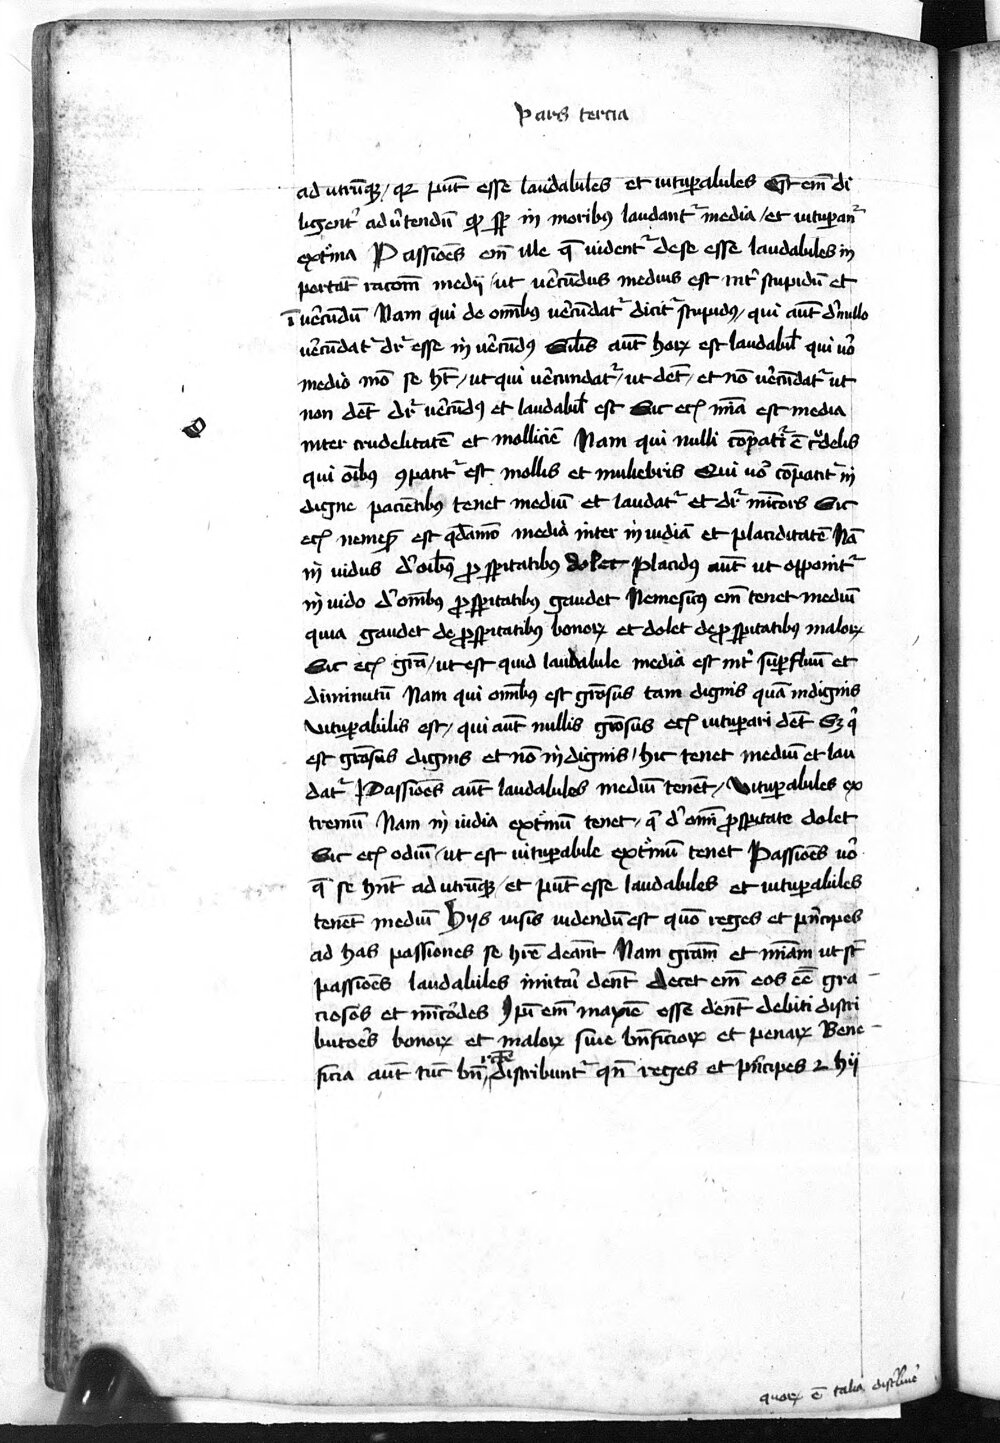 Pars tercia
ad utrūqꝫ / qꝛ p̄nt esse laudabiles et uitupabiles Est em̄ di
ligent᷑ adu᷑tendū qꝫ sp̄ in moribꝰ laudant᷑ media / et uitupan᷑
ext᷑ma Passiōes em̄ ille q̄ uident᷑ de se esse laudabiles im
portāt racōem medij / ut ue᷑cūdus medius est int᷑ stupidū et
īue᷑cūdū Nam qui de om̄ibꝰ ue᷑cūdat᷑ dicit᷑ stupidꝰ / qui aut̄ d᷑ nullo
ue᷑cūdat᷑ dr᷑ esse in ue᷑cūdꝰ Sil᷑is aut̄ hoꝝ est laudabil᷑ qui uo᷑
medio mō se h̄t / ut qui ue᷑cundat᷑ / ut det̄ / et nō ue᷑cūdat᷑ ut
non det̄ dr᷑ ue᷑cūdꝰ et laudabil᷑ est Sic ecꝫ mīa est media
inter crudelitatē et molliciē Nam qui nulli cōpatit᷑ ē c᷑udelis
qui oībꝰ ꝯpatit᷑ est mollis et muliebris Qui uo᷑ cōpatit᷑ in
digne paciētibꝰ tenet mediū et laudat᷑ et dr᷑ mīcors Sic
ecꝫ nemes᷑ est qdāmō media inter inuidiā et placiditatē Nā
in uidus d᷑ oībꝰ ꝓspitatibꝰ dolet Placidꝰ aut̄ ut opponit᷑
inuido d᷑ om̄ibꝰ ꝓspitatibꝰ gaudet Nemesitꝰ em̄ tenet mediū
quia gaudet de ꝓspitatibꝰ bonoꝝ et dolet de ꝓspitatibꝰ maloꝝ
Sic ecꝫ gr̄a / ut est quid laudabile media est int᷑ supfluū et
diminutū Nam qui om̄ibꝰ est gr̄osus tam dignis quā indignis
uitupabilis est / qui aut̄ nullis gr̄osus ecꝫ uitupari det̄ Sꝫ q᷑
est gr̄osus dignis et nō indignis / hic tenet mediū et lau
dat᷑ Passiōes aut̄ laudabiles mediū tenēt / Uitupabiles ex
tremū Nam inuidia ext᷑mū tenet / q̄ d᷑ omī ꝓspitate dolet
Sic ecꝫ odiū / ut est uitupabile ext᷑mū tenet Passiōes uo᷑
q̄ se hn̄t ad utrūqꝫ / et p̄nt esse laudabiles et uitupabiles
tenēt mediū Hijs uisis uidendū est quō reges et p᷑ncipes
ad has passiones se hr̄e deāt Nam gr̄am et mīam ut st̄
passiōes laudabiles imitari dēnt Decet em̄ eos eē̄ gra
ciosōs et mīcordes Ip̄i em̄ maxīe esse dēnt debiti distri
butor᷑es bonoꝝ et maloꝝ siue bn̄ficioꝝ et penaꝝ Bene
ficia aut̄ tūc bn̄ rc̄e distribunt᷑ qn̄ reges et p᷑ncipes ⁊ hij
quoꝝ ē talia dist᷑bue᷑